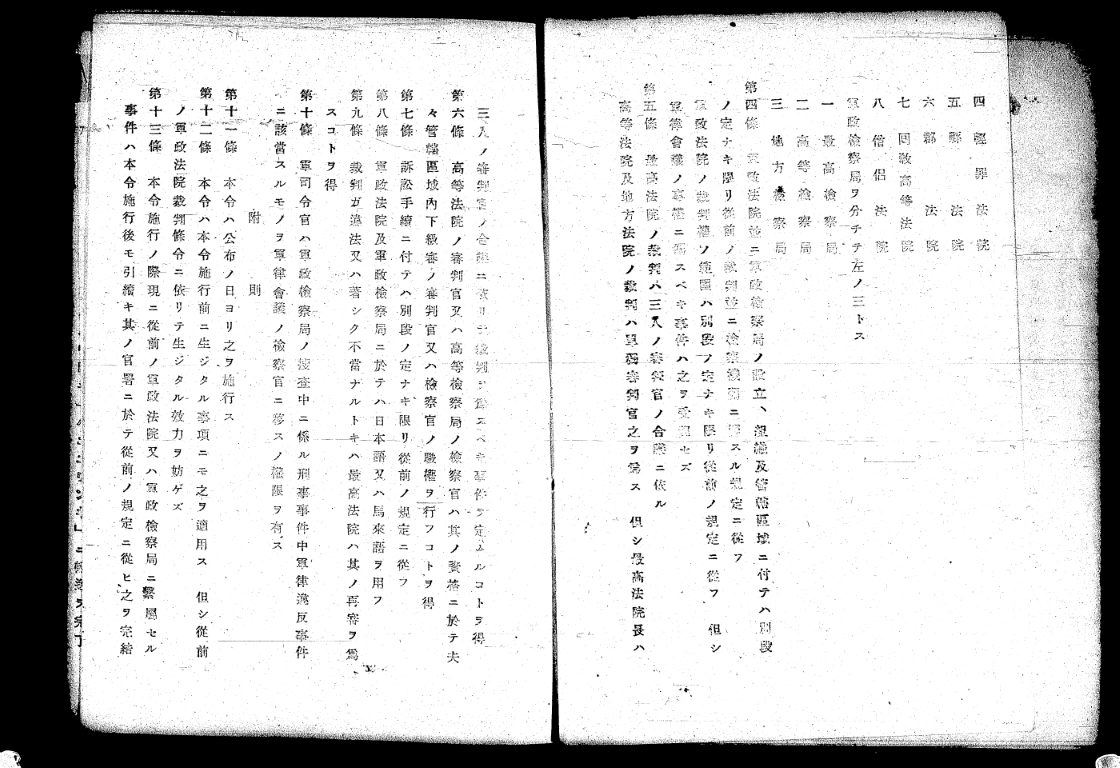 四 輕罪法院
五 縣法院
六 郡法院
七 囘敎高等法院
八 僧侶法院
軍政檢察局ヲ分チテ左ノ三トス
一 最高檢察局
二 高等檢察局
三 地方檢察局
第四條 軍政法院並ニ軍政檢察局ノ設立、組織及管轄區域ニ付テハ別段
ノ定ナキ限リ從前ノ裁判並ニ檢察機關ニ關スル規定ニ從フ
軍政法院ノ裁判權ノ範圍ハ別段ノ定ナキ限リ從前ノ規定ニ從フ 但シ
軍律會議ノ事權ニ屬スベキ事件ハ之ヲ受理セズ
第五條 最高法院ノ裁判ハ三人ノ審判官ノ合議ニ依ル
高等法院及地方法院ノ裁判ハ單獨審判官之ヲ爲ス 但シ最高法院長ハ
三人ノ審判官ノ合議ニ依リテ裁判ヲ爲スベキ事件ヲ定ムルコトヲ得
第六條 高等法院ノ審判官又ハ高等檢察局ノ檢察官ハ其ノ資格ニ於テ夫
々管轄區域內下級審ノ審判官又ハ檢察官ノ職權ヲ行フコトヲ得
第七條 訴訟手續ニ付テハ別段ノ定ナキ限リ從前ノ規定ニ從フ
第八條 軍政法院及軍政檢察局ニ於テハ日本語又ハ馬來語ヲ用フ
第九條 裁判ガ違法又ハ著シク不當ナルトキハ最高法院ハ其ノ再審ヲ爲
スコトヲ得
第十條 軍司令官ハ軍政檢察局ノ搜査中ニ係ル刑事事件中軍律違反事件
ニ該當スルモノヲ軍律會議ノ檢察官ニ移スノ權限ヲ有ス
附則
第十一條 本令ハ公布ノ日ヨリ之ヲ施行ス
第十二條 本令ハ本令施行前ニ生ジタル事項ニモ之ヲ適用ス 但シ從前
ノ軍政法院裁判條令ニ依リテ生ジタル效力ヲ妨ゲズ
第十三條 本令施行ノ際現ニ從前ノ軍政法院又ハ軍政檢察局ニ繫屬セル
事件ハ本令施行後モ引續キ其ノ官署ニ於テ從前ノ規定ニ從ヒ之ヲ完結